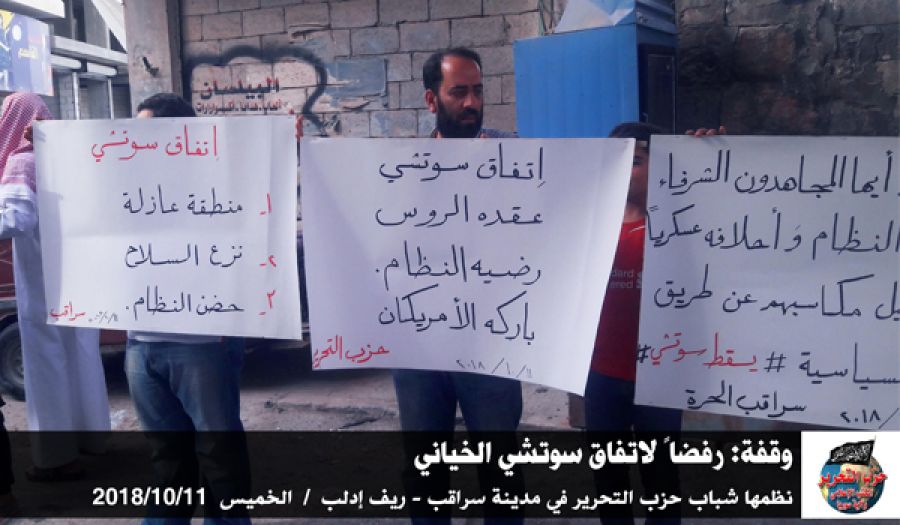 البيلسان
إتفاق سوتشي
١- منطقة عازلة
٢- نزع السلاح
٣- حضن النظام.
سراقب
إتفاق سوتشي
عقده الروس
رضيه النظام.
باركه الأمريكان
حزب التحرير
٢٠١٨/١٠/١١
أيها المجاهدون الشرفاء
النظام وَأحلافه عسكرياً
يل مكاسبهم عن طريق
سياسية #يسقط_سوتشي#
سراقب الحرة
٢٠١٨/
وقفة: رفضاً لاتفاق سوتشي الخياني
نظمها شباب حزب التحرير في مدينة سراقب - ريف إدلب / الخميس 2018/10/11
حزب التحرير